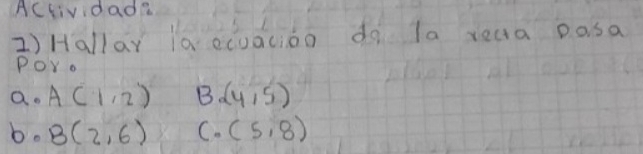 Actividad2.
1) Hallar la ecuación de la recta pasa
por.
a. A(1,2) B.(4,5)
b. B(2,6) C.(5,8)